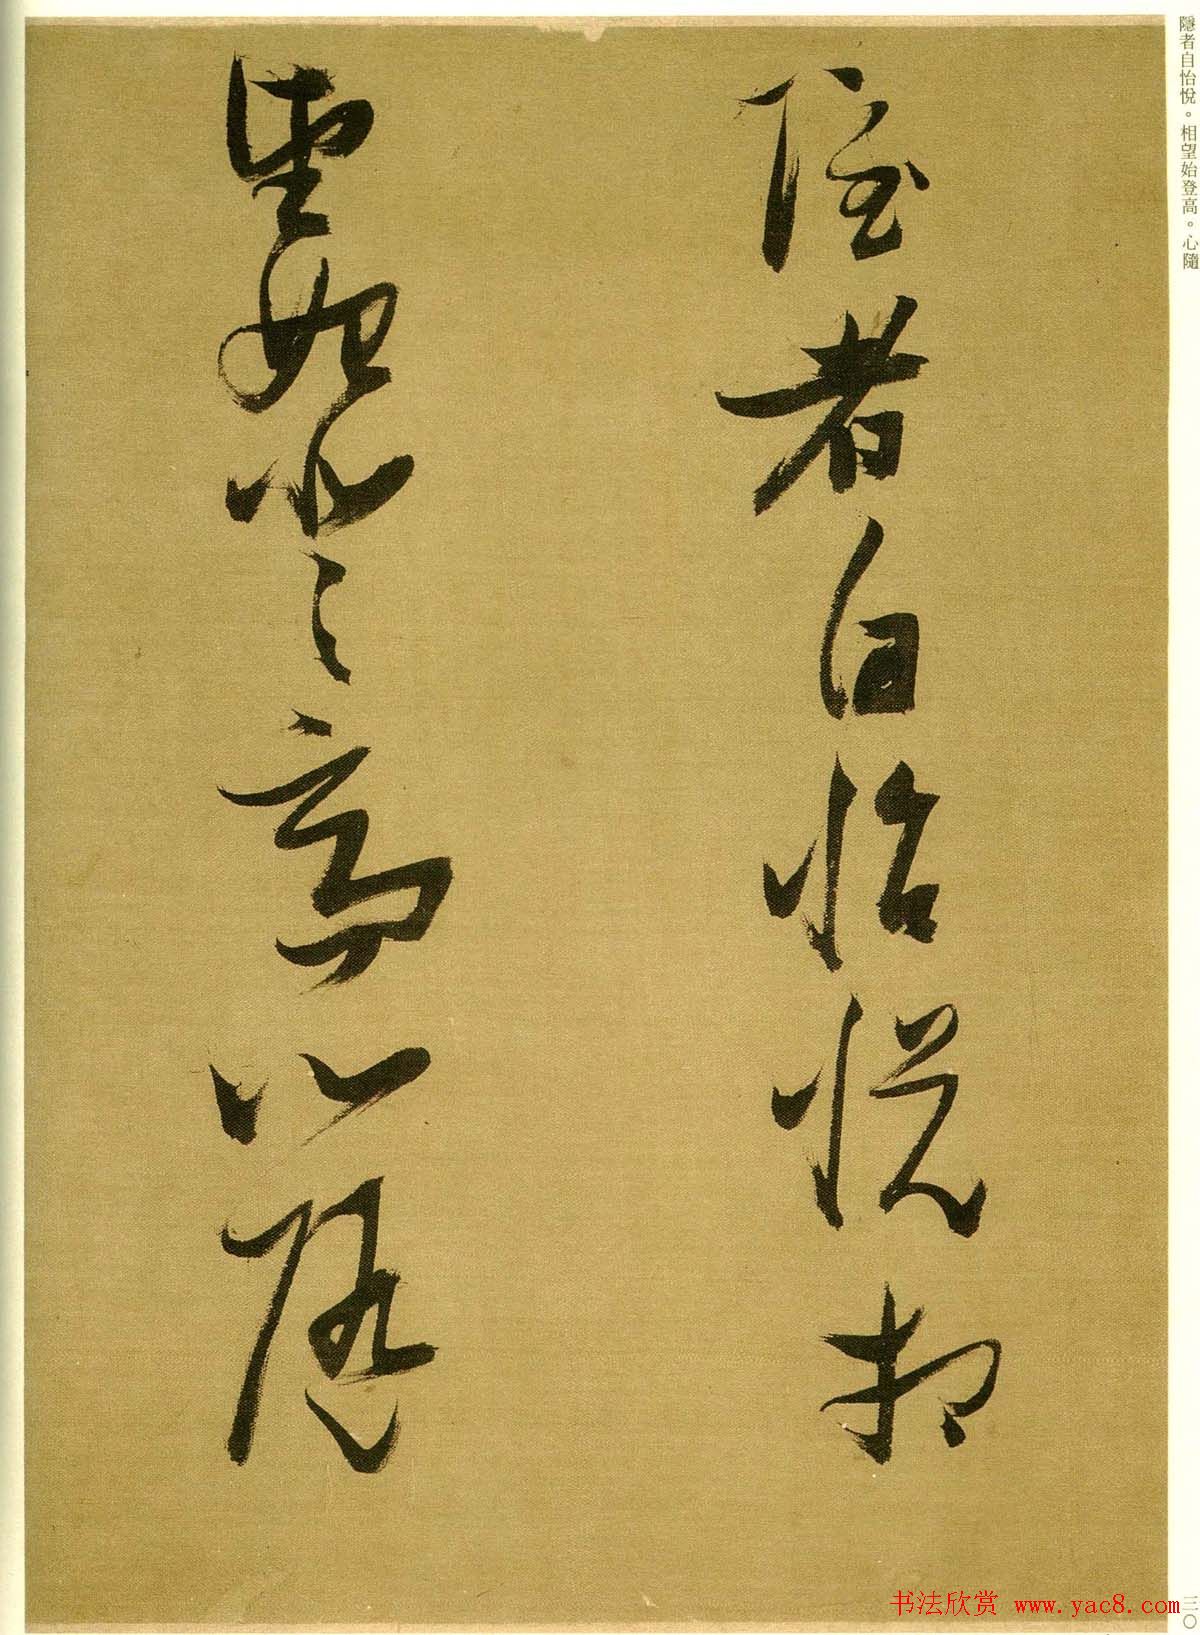 隱者自怡悅。相望始登高。心隨
隱者自怡悅相
望始登高心隨
三〇
书法欣赏 www.yac8.com